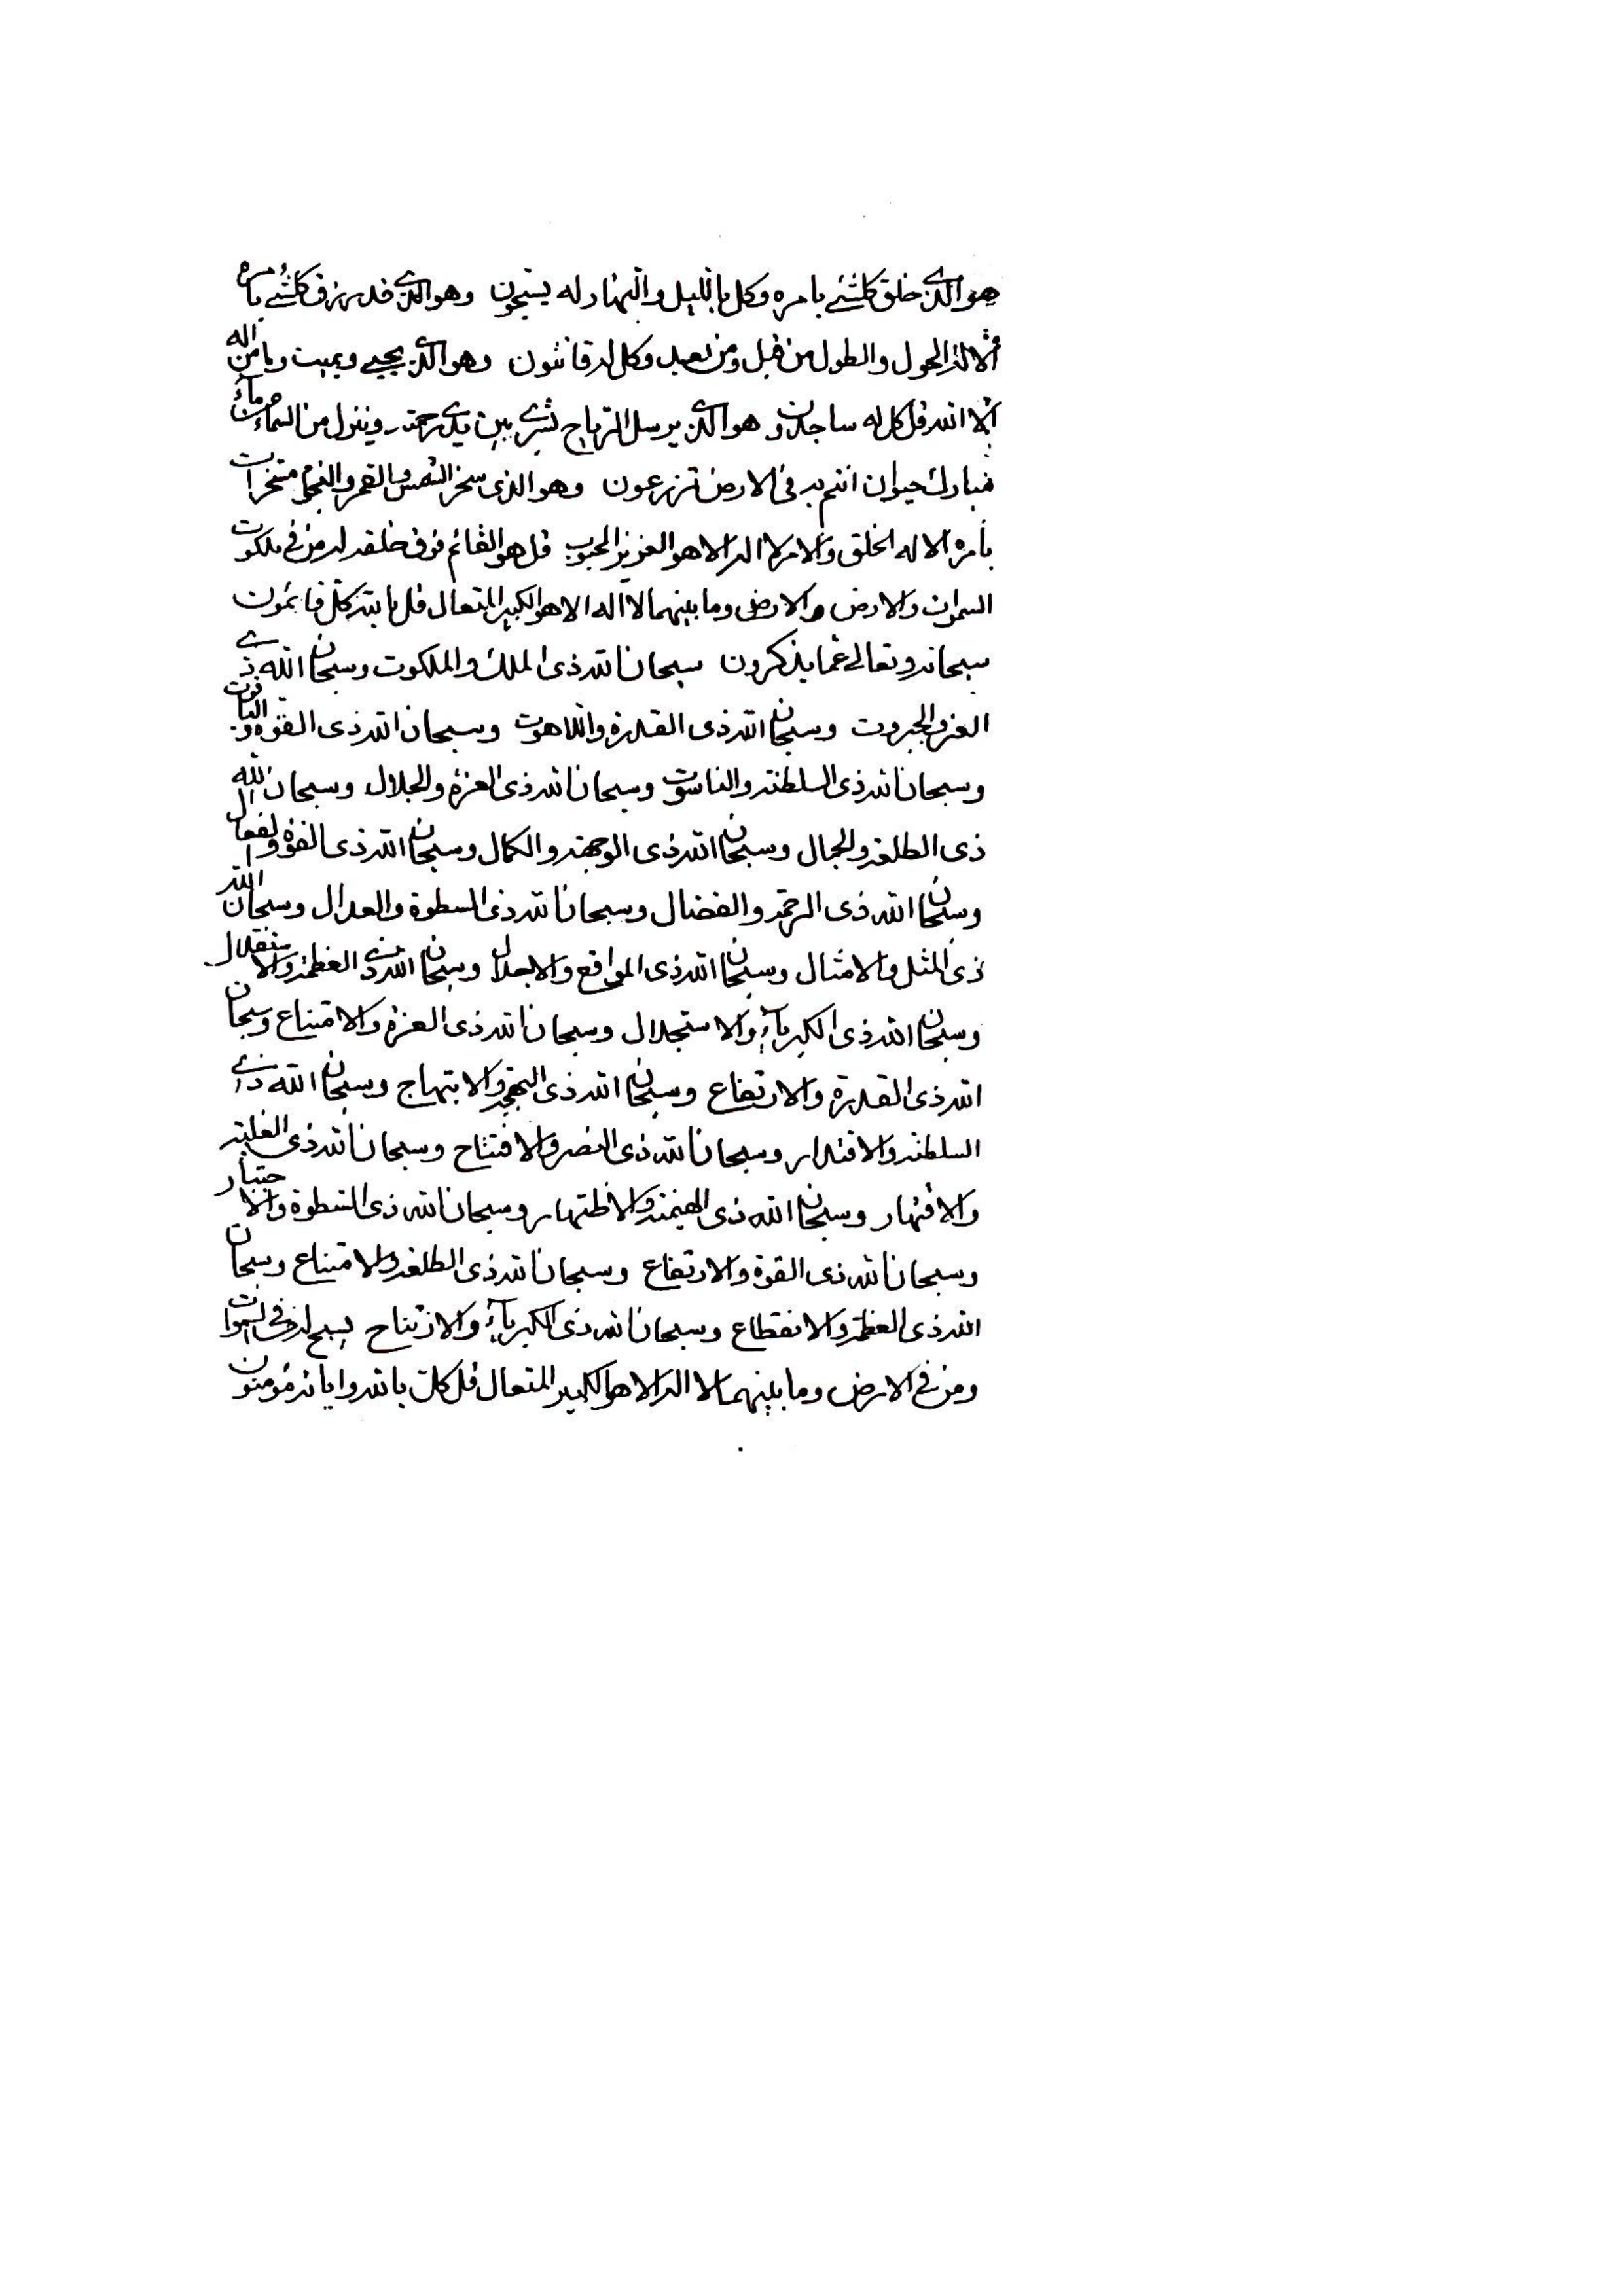 هو الذي خلق كلشئ بامره وكل بالليل والنهار له يسبحون وهو الذي قد رزق كلشئ بامره
الا له الحول والطول من قبل ومن بعد وكل له قانتون وهو الذي يحيي ويميت وما من اله
الا الله قل كل له ساجدون هو الذي يرسل الرياح نشرى بين يدي رحمته وينزل من السماء من ماء
مبارك حيوان انتم به في الارض تزرعون وهو الذي سخر الشمس والقمر والنجوم مسخرات
بامره الا له الخلق والامر لا اله الا هو العزيز المحبوب قل هو القائم فوق خلقه له من في ملكوت
السموات والارض والارض وما بينهما لا اله الا هو الكبير المتعال قل بالله كل قائمون
سبحانه وتعالى عما يذكرون سبحان الله ذي الملك والملكوت وسبحان الله ذي
العز والجبروت وسبحان الله ذي القدرة واللاهوت وسبحان الله ذي القوة والياقوت
وسبحان الله ذي السلطنة والناسوت وسبحان الله ذي العزة والجلال وسبحان الله
ذي الطلعة والجمال وسبحان الله ذي الوجهة والكمال وسبحان الله ذي القوة والفعال
وسبحان الله ذي الرحمة والفضال وسبحان الله ذي السطوة والعدال وسبحان الله
ذي المثل والامثال وسبحان الله ذي المواقع والاجلال وسبحان الله ذي العظمة والاستقلال
وسبحان الله ذي الكبرياء والاستجلال وسبحان الله ذي العزة والامتناع وسبحان
الله ذي القدرة والارتفاع وسبحان الله ذي البهجة والابتهاج وسبحان الله ذي
السلطنة والاقتدار وسبحان الله ذي النصر والافتتاح وسبحان الله ذي الغلبة
والاقتهار وسبحان الله ذي الهيمنة والاظتهار وسبحان الله ذي السطوة والاجتبار
وسبحان الله ذي القوة والارتفاع وسبحان الله ذي الطلعة والامتناع وسبحان
الله ذي العظمة والانقطاع وسبحان الله ذي الكبرياء والارتياح يسبح له من في السموات
ومن في الارض وما بينهما لا اله الا هو الكبير المتعال قل كل بالله واياته مؤمنون